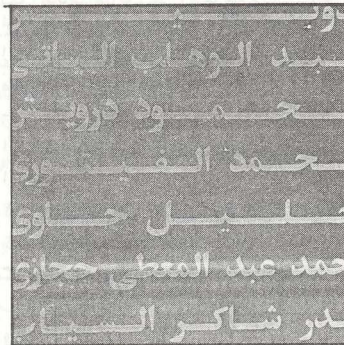 دونيس
عبد الوهاب البياتي
محمود درويش
محمد الفيتوري
خليل حاوي
أحمد عبد المعطي حجازي
بدر شاكر السياب